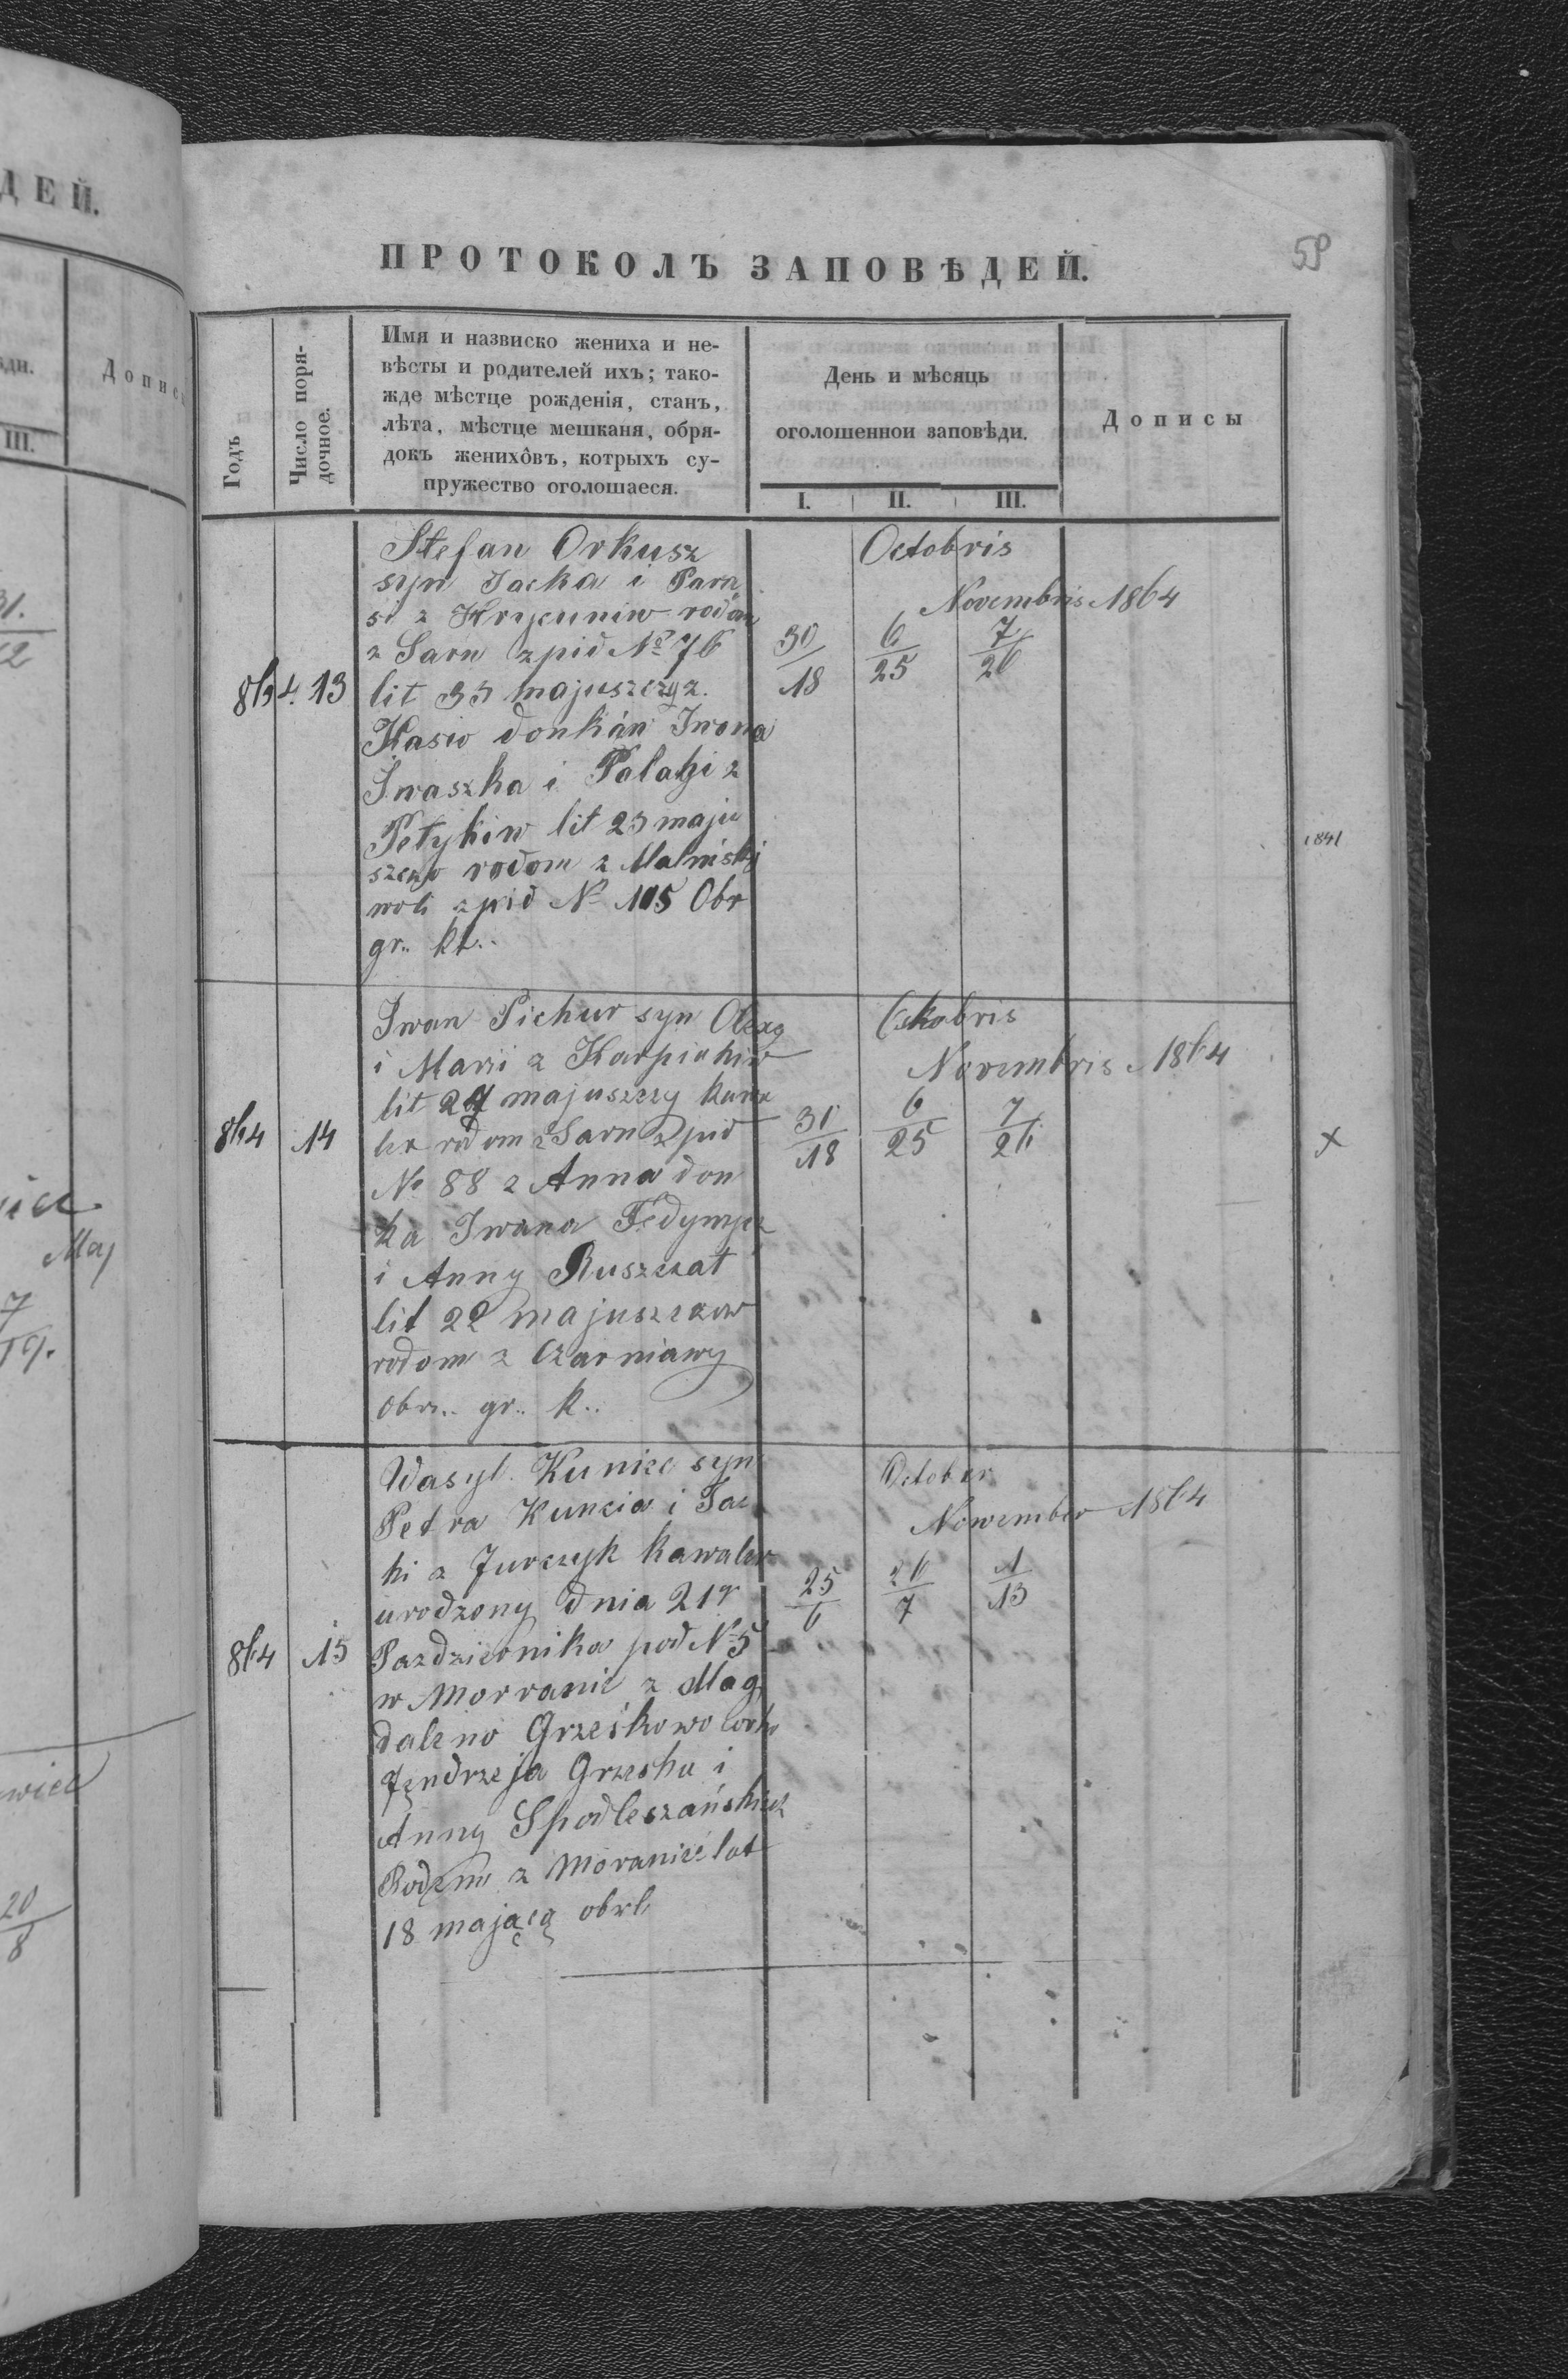 ДЕЙ.
Допис
III.
ПРОТОКОЛЪ ЗАПОВѢДЕЙ.
59
Годъ
Число поря-
дочное.
Имя и назвиско жениха и не-
вѣсты и родителей ихъ; тако-
жде мѣстце рожденія, станъ,
лѣта, мѣстце мешканя, обря-
докъ женихôвъ, котрыхъ су-
пружество оголошаеся.
День и мѣсяць
оголошеннои заповѣди.
I. II. III.
Дописы
864. 13
Stefan Orkusz
syn Jacka i Para
si z Hrycuniw rodom
z Sarn zpid No 76
lit 35 majuszczy z
Kasio donkáw Iwana
Iwaszka i Palahi z
Petykiw lit 23 maju
szczo rodom z Malniskoj
woli zpid No 105 Obr
gr.. kt..
Octobris
Novembris 1864
30/18 6/25 7/26
1841
864 14
Iwan Pichur syn
i Maryi z Karpiakiw
lit 27 majuszczy kawa
ler rodom z Sarn zpid
No 88 z Anna don
ka Iwana
i Anny Ruszczat
lit 22 majuszczow
rodom z Czarniawy
obrz.. gr.. k..
Octobris
Novembris 1864
31/18 6/25 7/26
x
864 15
Wasyl Kuniec syn
Petra Kuncia i Jac
ki z Jurczyk kawaler
urodzony dnia 21
Pazdziernika pod No 5
w Morranic z Mag
daleno Grześkowo Corko
Jęndrzeja Grzeshu i
Anny Spodleszańskich
Rodem z Moranic lat
18 mającą obrł
October
Nowember 1864
25/6 26/7 1/13